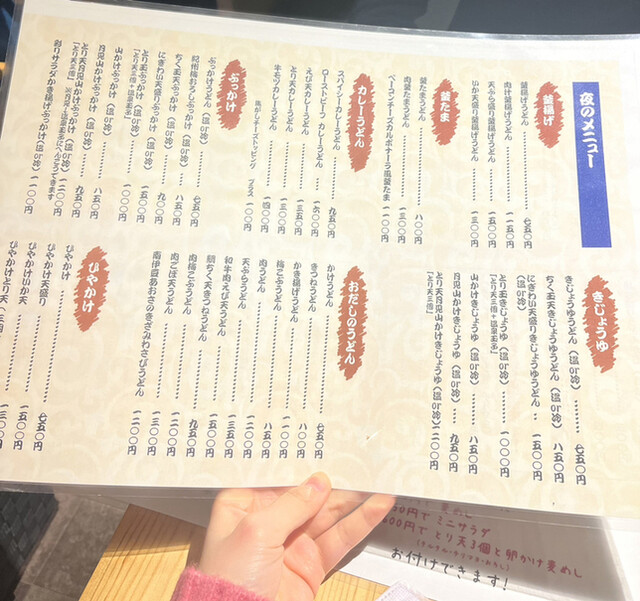 夜のメニュー
釜揚げ
釜揚げうどん 七五〇円
肉汁釜揚げうどん 一一五〇円
天ぷら盛り釜揚げうどん 一五〇〇円
いか天盛り釜揚げうどん 一三〇〇円
釜たま
釜たまうどん 八〇〇円
肉釜たまうどん 一三〇〇円
ベーコンチーズカルボナーラ風釜たま 一一〇〇円
カレーうどん
スパイシーカレーうどん 九五〇円
ローストビーフ カレーうどん 一六〇〇円
えび天カレーうどん 一三五〇円
とり天カレーうどん 一三〇〇円
牛モツカレーうどん 一四〇〇円
焦がしチーズトッピング プラス 三〇〇円
ぶっかけ
ぶっかけうどん（温or冷） 七五〇円
紀州梅おろしぶっかけ（温or冷） 九五〇円
ちく玉天ぶっかけ（温or冷） 八五〇円
にぎわい天盛りぶっかけ（温or冷） 一五〇〇円
とり玉ぶっかけ（温or冷） 一〇〇〇円
「とり天三個＋温泉玉子」
山かけぶっかけ（温or冷） 八五〇円
月見山かけぶっかけ（温or冷） 九五〇円
とり天月見山かけぶっかけ（温or冷） 一二〇〇円
「とり天三個」
彩りサラダかき揚げぶっかけ（温or冷） 一一〇〇円
きじょうゆ
きじょうゆうどん（温or冷） 七五〇円
ちく玉天きじょうゆうどん（温or冷） 八五〇円
にぎわい天盛りきじょうゆうどん（温or冷） 一五〇〇円
とり玉きじょうゆ（温or冷） 一〇〇〇円
「とり天三個＋温泉玉子」
山かけきじょうゆ（温or冷） 八五〇円
月見山かけきじょうゆ（温or冷） 九五〇円
とり天月見山かけきじょうゆ（温or冷） 一二〇〇円
「とり天三個」
おだしのうどん
かけうどん 七五〇円
きつねうどん 八五〇円
かき揚げうどん 八〇〇円
梅こぶうどん 一一〇〇円
肉うどん
天ぷらうどん
和牛肉えび天うどん
鯛ちく天きつねうどん
肉梅こぶうどん
肉ごぼ天うどん
南伊豆あおさのきざみわさびうどん
ひやかけ
ひやかけ 七五〇円
ひやかけ天盛り 一五〇〇円
ひやかけいか天
ひやかけとり天
ミニサラダ
とり天3個と卵かけ麦めし
お付けできます!